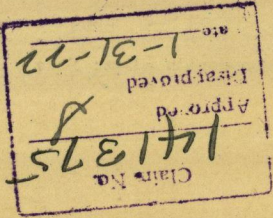 Claim No.
141375
Approved
Disapproved
ate 1-31-22